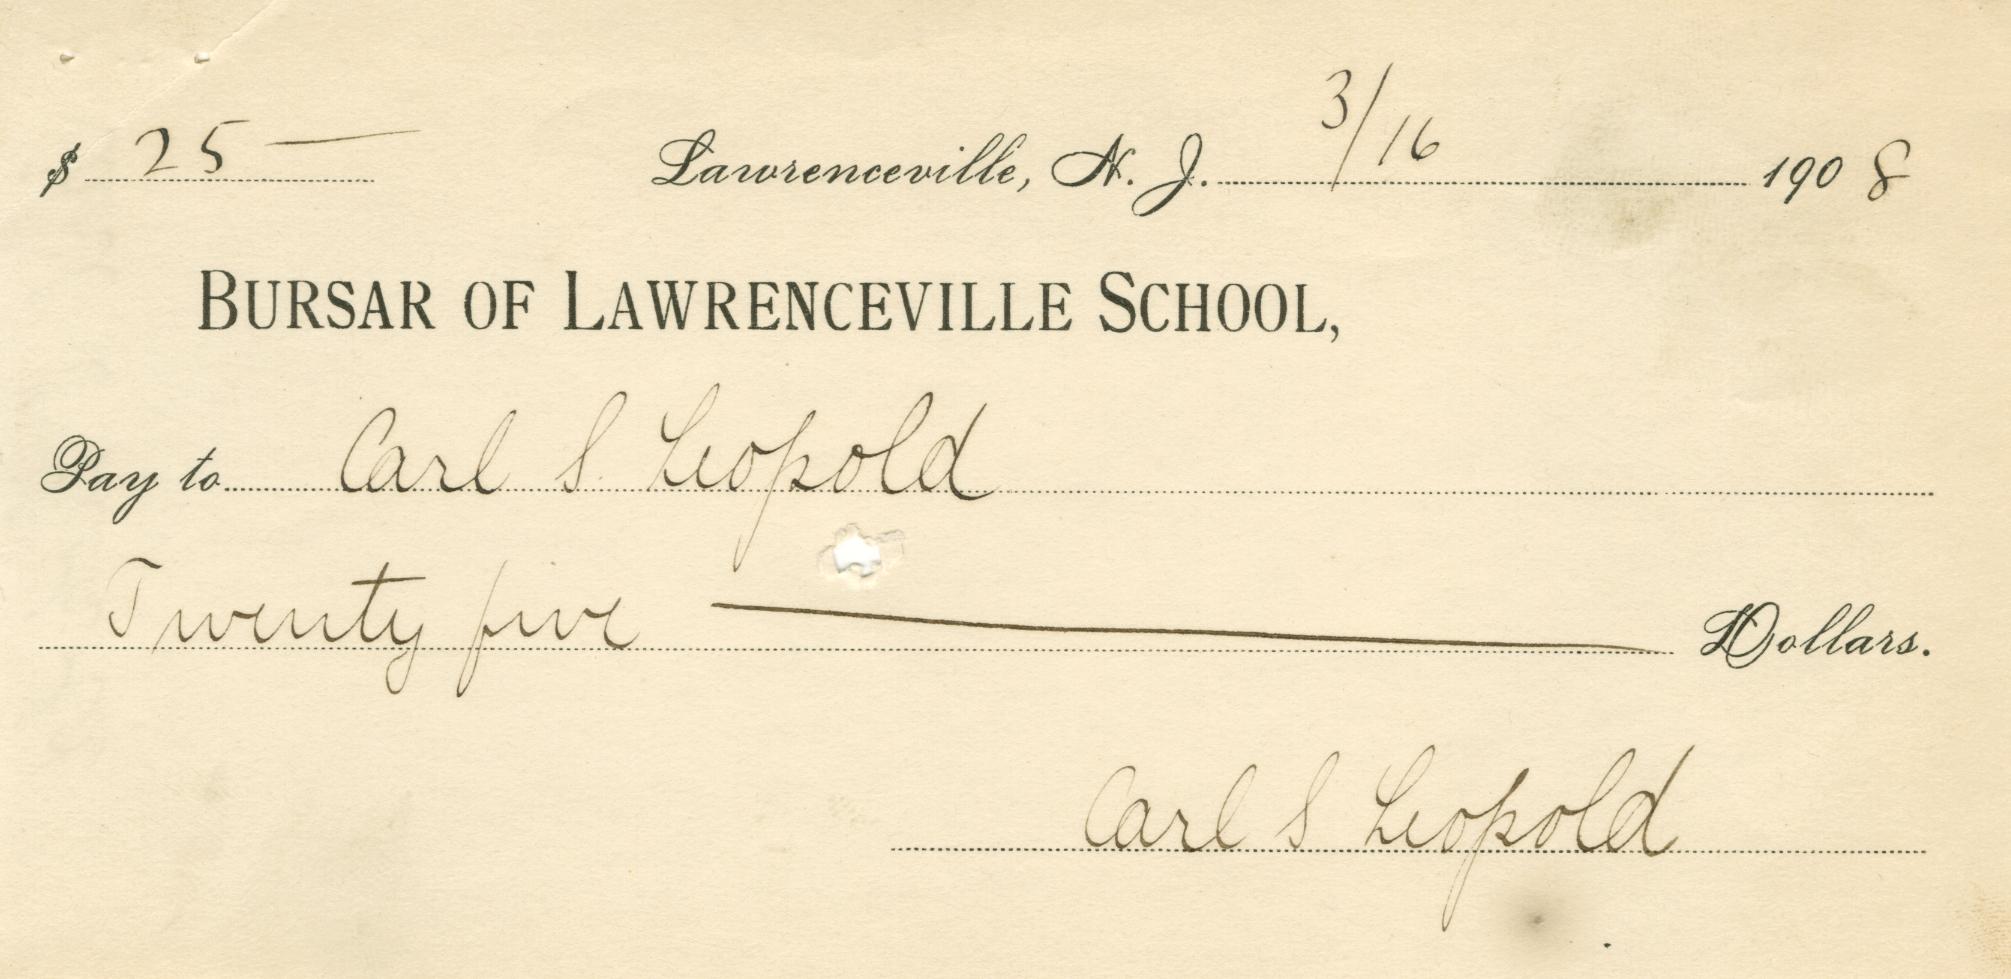 $ 25 — Lawrenceville, N. J. 3/16 1908
BURSAR OF LAWRENCEVILLE SCHOOL,
Pay to Carl S. Leopold
Twenty five — Dollars.
Carl S Leopold